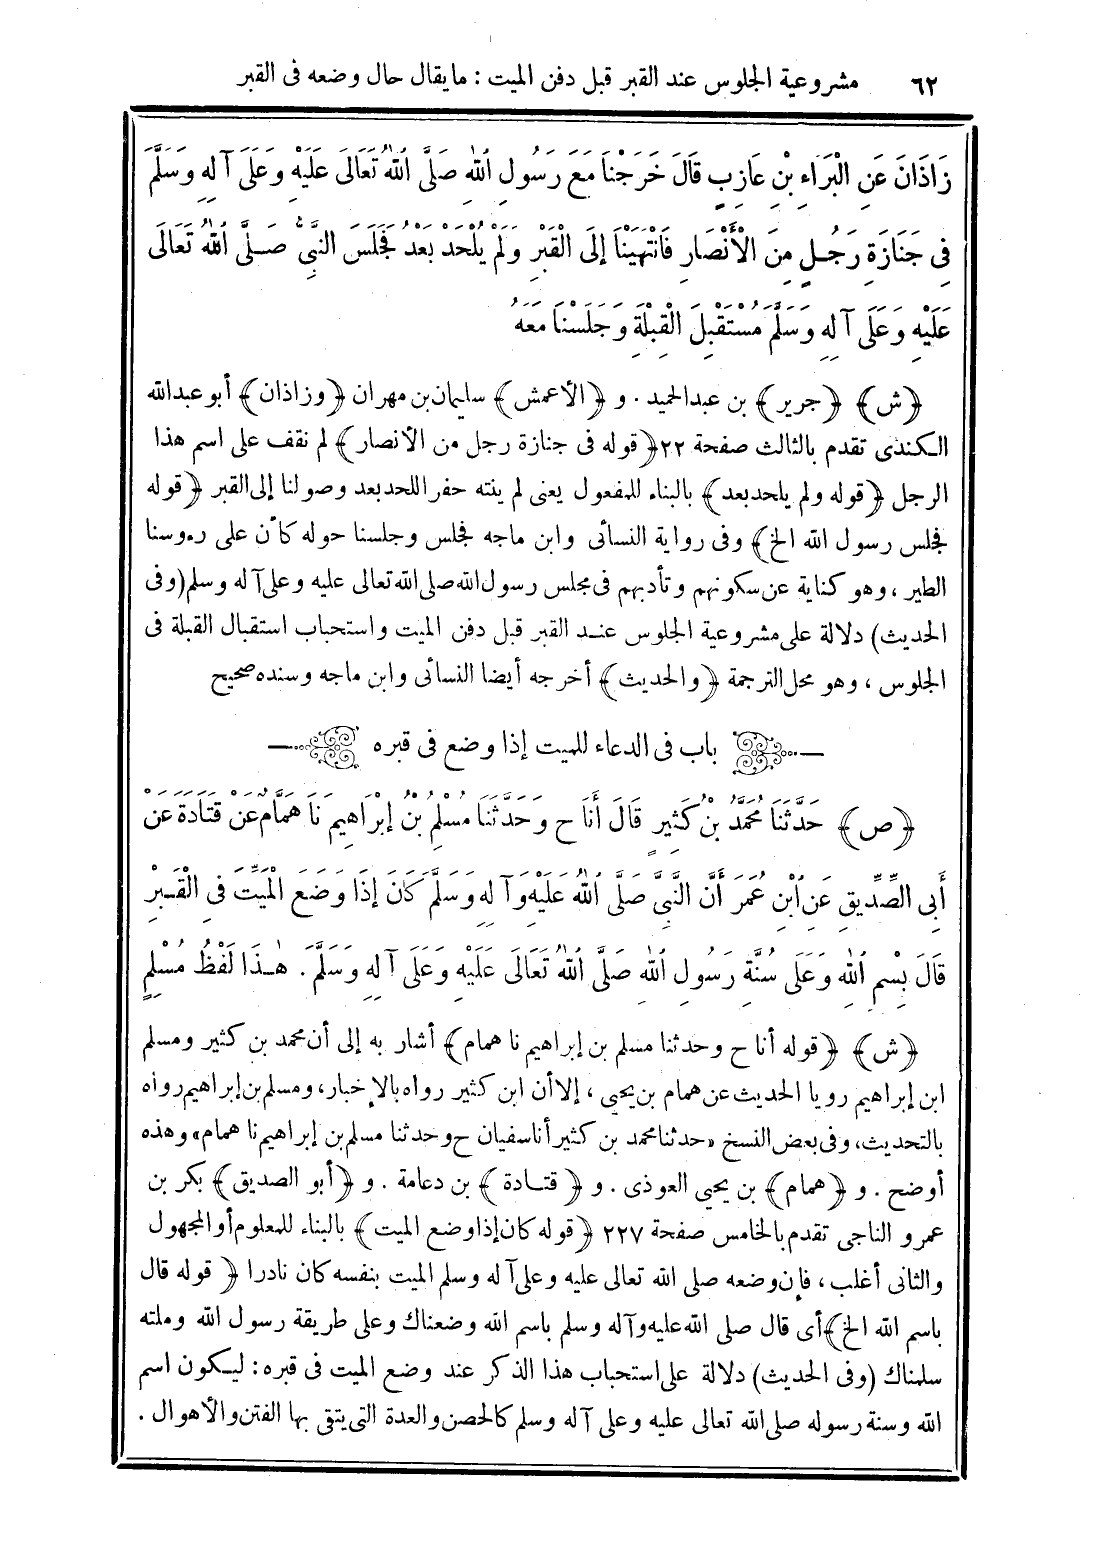 ٦٢ مشروعية الجلوس عند القبر قبل دفن الميت : ما يقال حال وضعه فى القبر
زَاذَانَ عَنِ الْبَرَاءِ بْنِ عَازِبٍ قَالَ خَرَجْنَا مَعَ رَسُولِ اللهِ صَلَّى اللهُ تَعَالَى عَلَيْهِ وَعَلَى آلِهِ وَسَلَّمَ
فِى جَنَازَةِ رَجُلٍ مِنَ الْأَنْصَارِ فَانْتَهَيْنَا إِلَى الْقَبْرِ وَلَمْ يُلْحَدْ بَعْدُ فَجَلَسَ النَّبِىُّ صَلَّى اللهُ تَعَالَى
عَلَيْهِ وَعَلَى آلِهِ وَسَلَّمَ مُسْتَقْبِلَ الْقِبْلَةِ وَجَلَسْنَا مَعَهُ
﴿ش﴾ ﴿جرير﴾ بن عبدالحميد . و ﴿الأعمش﴾ سليمان بن مهران ﴿وزاذان﴾ أبو عبدالله
الكندى تقدم بالثالث صفحة ٢٢ ﴿قوله فى جنازة رجل من الأنصار﴾ لم نقف على اسم هذا
الرجل ﴿قوله ولم يلحد بعد﴾ بالبناء للمفعول يعنى لم ينته حفر اللحد بعد وصولنا إلى القبر ﴿قوله
فجلس رسول الله الخ﴾ وفى رواية النسائى وابن ماجه فجلس وجلسنا حوله كأن على رءوسنا
الطير ، وهو كناية عن سكونهم وتأدبهم فى مجلس رسول الله صلى الله تعالى عليه وعلى آله وسلم (وفى
الحديث) دلالة على مشروعية الجلوس عند القبر قبل دفن الميت واستحباب استقبال القبلة فى
الجلوس ، وهو محل الترجمة ﴿والحديث﴾ أخرجه أيضا النسائى وابن ماجه وسنده صحيح
باب فى الدعاء للميت إذا وضع فى قبره
﴿ص﴾ حَدَّثَنَا مُحَمَّدُ بْنُ كَثِيرٍ قَالَ أَنَا ح وَحَدَّثَنَا مُسْلِمُ بْنُ إِبْرَاهِيمَ نَا هَمَّامٌ عَنْ قَتَادَةَ عَنْ
أَبِى الصِّدِّيقِ عَنِ ابْنِ عُمَرَ أَنَّ النَّبِىَّ صَلَّى اللهُ عَلَيْهِ وَآلِهِ وَسَلَّمَ كَانَ إِذَا وَضَعَ الْمَيِّتَ فِى الْقَبْرِ
قَالَ بِسْمِ اللهِ وَعَلَى سُنَّةِ رَسُولِ اللهِ صَلَّى اللهُ تَعَالَى عَلَيْهِ وَعَلَى آلِهِ وَسَلَّمَ . هٰذَا لَفْظُ مُسْلِمٍ
﴿ش﴾ ﴿قوله أنا ح وحدثنا مسلم بن إبراهيم نا همام﴾ أشار به إلى أن محمد بن كثير ومسلم
ابن إبراهيم رويا الحديث عن همام بن يحيى ، إلا أن ابن كثير رواه بالإخبار، ومسلم بن إبراهيم رواه
بالتحديث، وفى بعض النسخ «حدثنا محمد بن كثير أنا سفيان ح وحدثنا مسلم بن إبراهيم نا همام» وهذه
أوضح . و ﴿همام﴾ بن يحيى العوذى . و ﴿قتادة﴾ بن دعامة . و ﴿أبو الصديق﴾ بكر بن
عمرو الناجى تقدم بالخامس صفحة ٢٢٧ ﴿قوله كان إذا وضع الميت﴾ بالبناء للمعلوم أو المجهول
والثانى أغلب ، فإن وضعه صلى الله تعالى عليه وعلى آله وسلم الميت بنفسه كان نادرا ﴿قوله قال
باسم الله الخ﴾ أى قال صلى الله عليه وآله وسلم باسم الله وضعناك وعلى طريقة رسول الله وملته
سلمناك (وفى الحديث) دلالة على استحباب هذا الذكر عند وضع الميت فى قبره : ليكون اسم
الله وسنة رسوله صلى الله تعالى عليه وعلى آله وسلم كالحصن والعدة التى يتقى بها الفتن والأهوال .